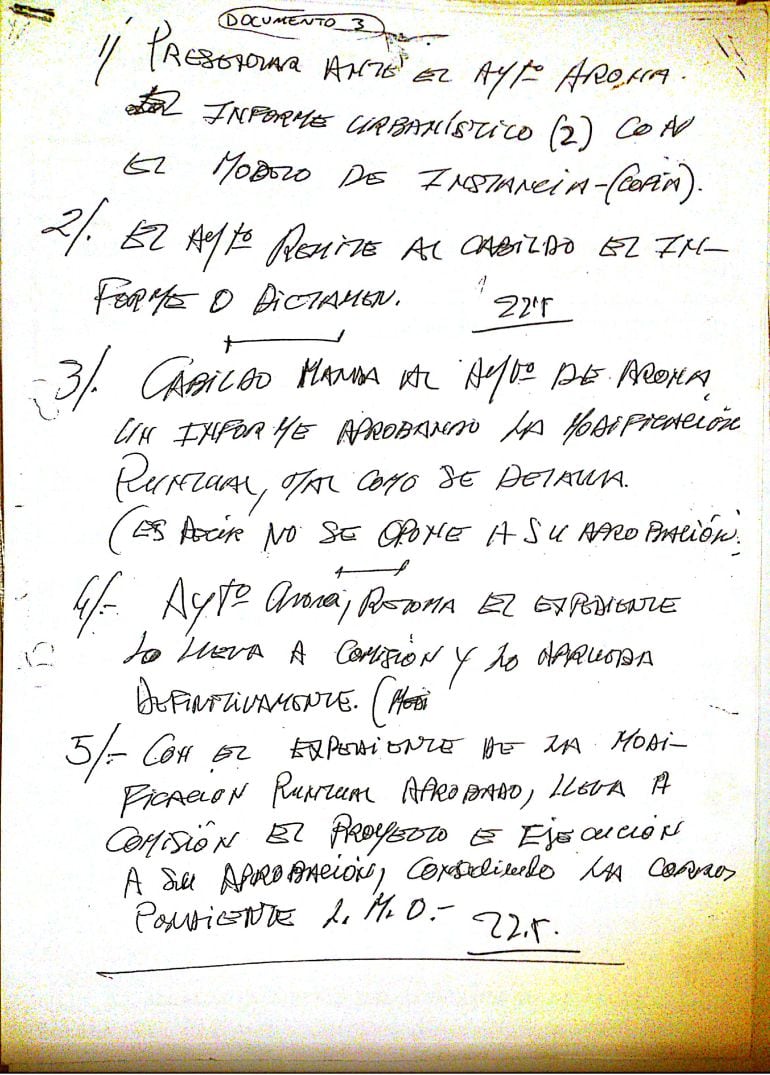 DOCUMENTO 3
1/ PRESENTAR ANTE EL AYTº ARONA.
INFORME URBANÍSTICO (2) CON
EL MODELO DE INSTANCIA-(COPIA).
2/. EL AYTº REMITE AL CABILDO EL IN-
FORME O DICTAMEN. 22'r
3/. CABILDO MANDA AL AYTº DE ARONA,
UN INFORME APROBANDO LA MODIFICACIÓN
PUNTUAL, TAL COMO SE DETALLA.
(ES DECIR NO SE OPONE A SU APROBACIÓN.
4/.- AYTº Arona, RETOMA EL EXPEDIENTE
LO LLEVA A COMISIÓN Y LO APRUEBA
DEFINITIVAMENTE. (
5/.- CON EL EXPEDIENTE DE LA MODI-
FICACIÓN PUNTUAL APROBADO, LLEVA A
COMISIÓN EL PROYECTO E EJECUCIÓN
A SU APROBACIÓN, CONSEDIENDO LA CORRES
PONDIENTE L.M.O.- 22.r.